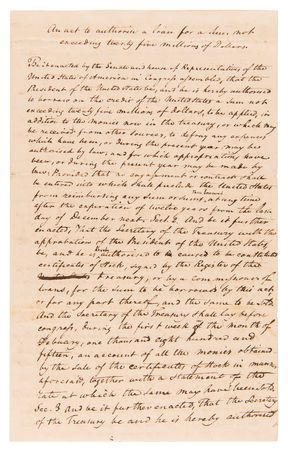 An act to authorise a loan for a sum not
exceeding twenty five millions of Dollars.
Be it enacted by the Senate and house of Representatives of the
United States of America in Congress assembled, that the
President of the United States be, and he is hereby authorised
to borrow on the credit of the United States a sum not
exceeding twenty five millions of Dollars, to be applied, in
addition to the monies now in the treasury, or which may
be received from other sources, to defray any expences,
which have been, or during the present year may be
authorised by law, and for which appropriations have
been, or during the present year may be made by
law: Provided that no engagement or contract shall
be entered into which shall preclude the United States
from reimbursing any sum or sums, at any time
after the expiration of twelve years from the last
day of december next. Sect 2. And be it further
enacted, That the Secretary of the Treasury with the
approbation of the President of the United States
be, and he is hereby to caused to be constituted
certificates of stock, signed by the Register of the
Treasury, or by a commissioner of
loans, for the sum to be borrowed by this act
or for any part thereof, and the same to be sold.
And the Secretary of the Treasury shall lay before
congress, during the first week of the month of
February, one thousand eight hundred and
fifteen, an account of all the monies obtained
by the sale of the certificates of stock in manner
aforesaid, together with a statement of the
rate at which the same may have been sold.
Sec. 3 and be it further enacted, That the Secretary
of the Treasury be and he is hereby authorised